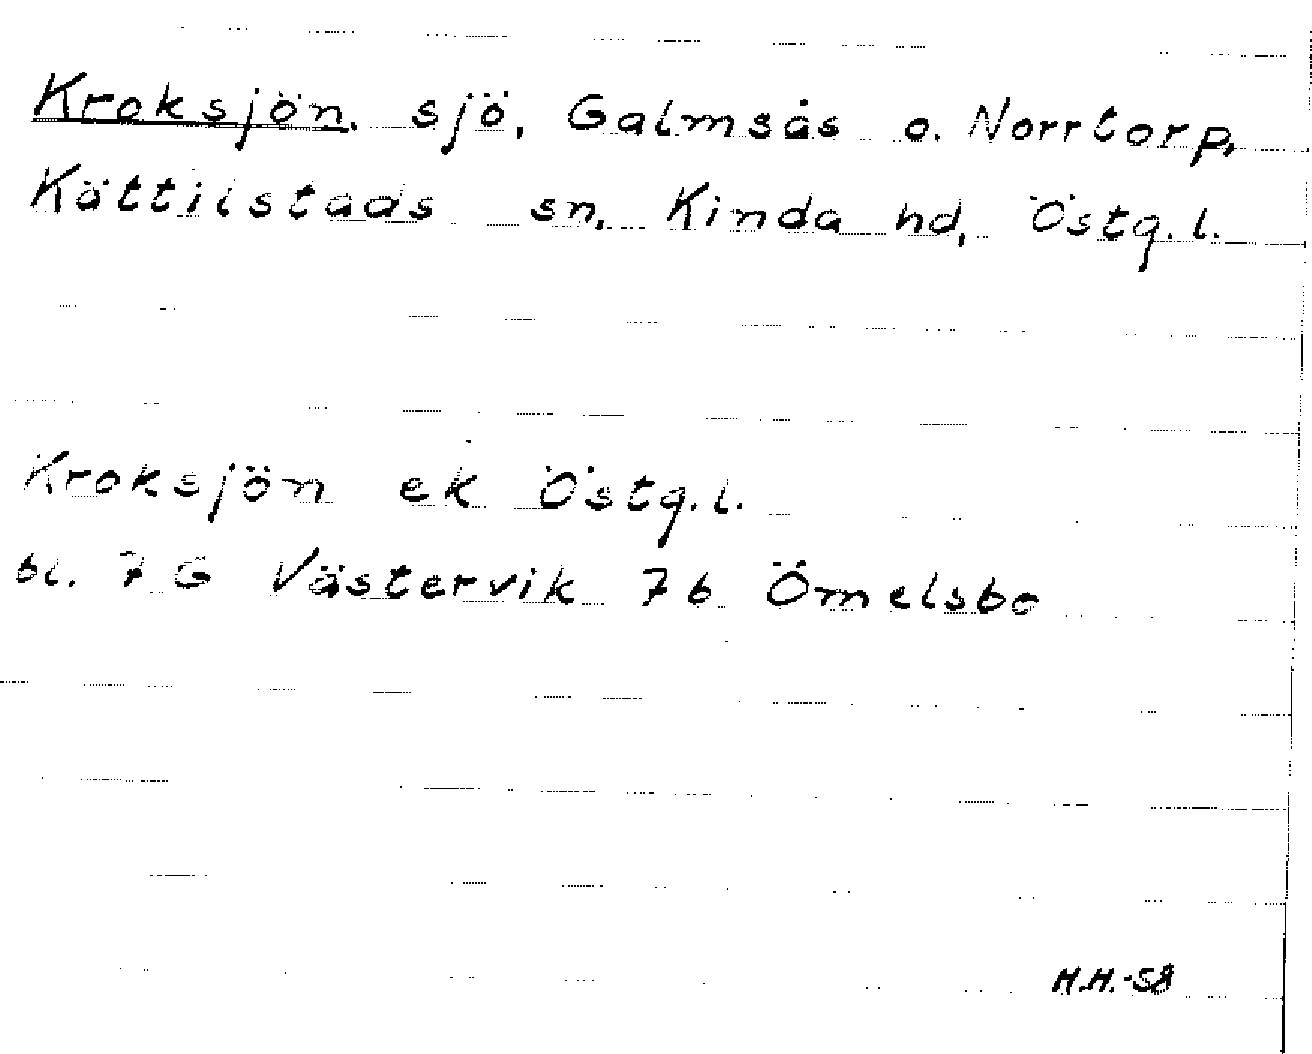 Kroksjön. sjö, Galmsås o. Norrtorp,
Kättilstads sn. Kinda hd, Östg. l.
Kroksjön ek Östg. l.
bl. 7 G Västervik 7b Ömelsbo
H.H.-58